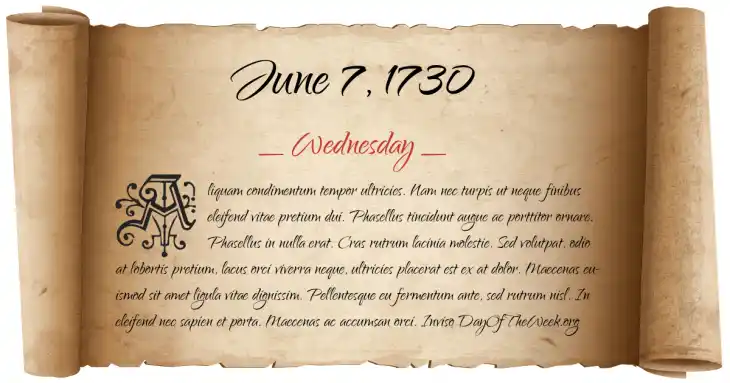 June 7, 1730
— Wednesday —
Aliquam condimentum tempor ultricies. Nam nec turpis ut neque finibus
eleifend vitae pretium dui. Phasellus tincidunt augue ac porttitor ornare.
Phasellus in nulla erat. Cras rutrum lacinia molestie. Sed volutpat, odio
at lobortis pretium, lacus orci viverra neque, ultricies placerat est ex at dolor. Maecenas eu-
ismod sit amet ligula vitae dignissim. Pellentesque eu fermentum ante, sed rutrum nisl. In
eleifend nec sapien et porta. Maecenas ac accumsan orci. Inviso DayOfTheWeek.org